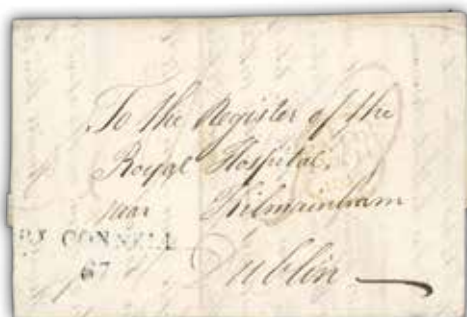 To the Register of the
Royal Hospital,
near Kilmainham
CONNELL
67
Dublin